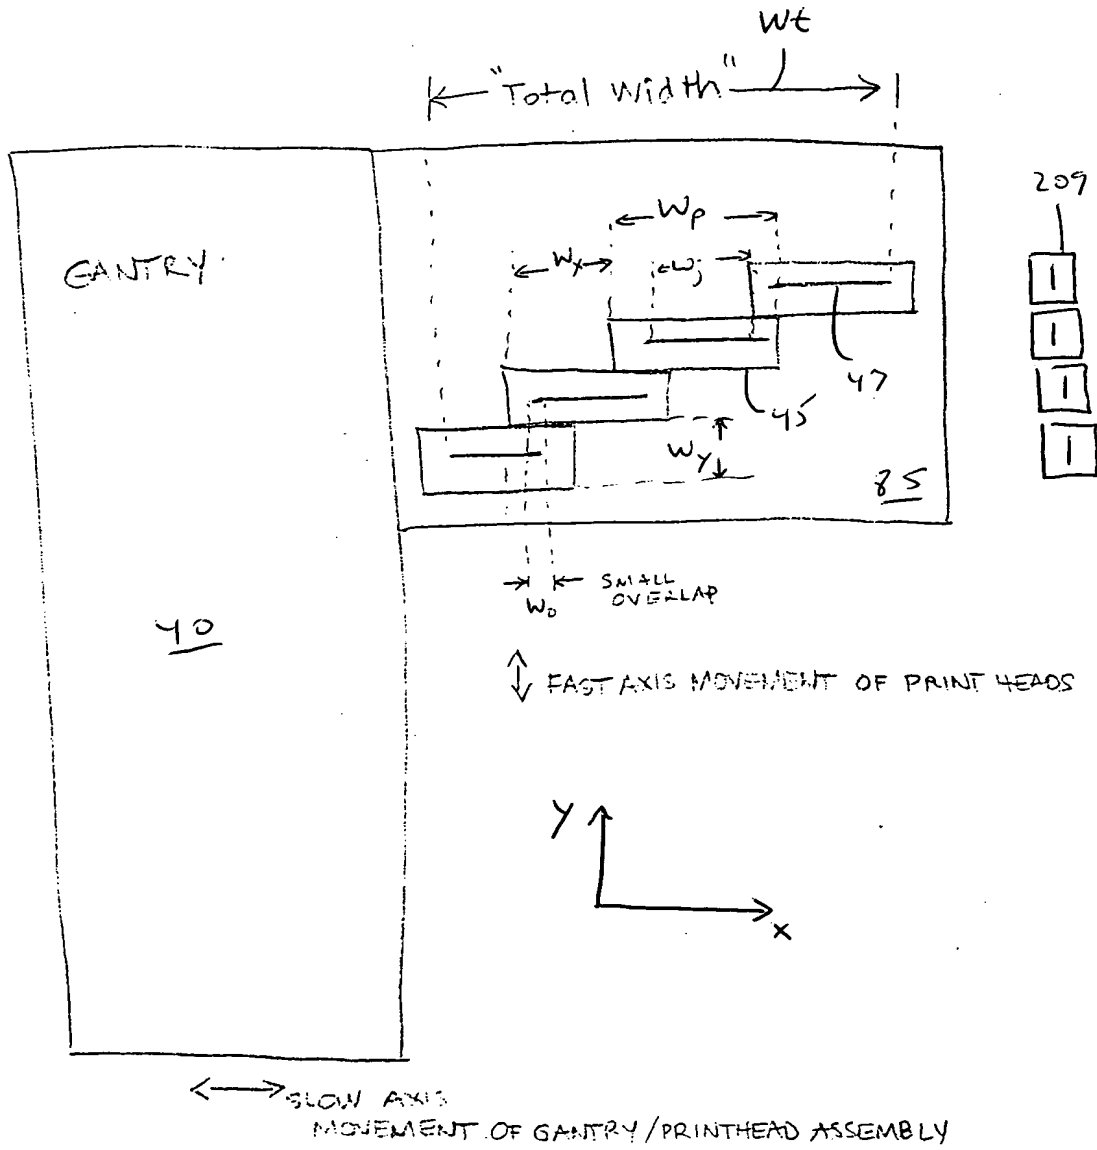 Wt
"Total Width"
209
Wp
GANTRY
Wx
Wj
47
45
Wy
85
SMALL
OVERLAP
Wo
40
FAST AXIS MOVEMENT OF PRINT HEADS
Y
X
SLOW AXIS
MOVEMENT OF GANTRY/PRINTHEAD ASSEMBLY